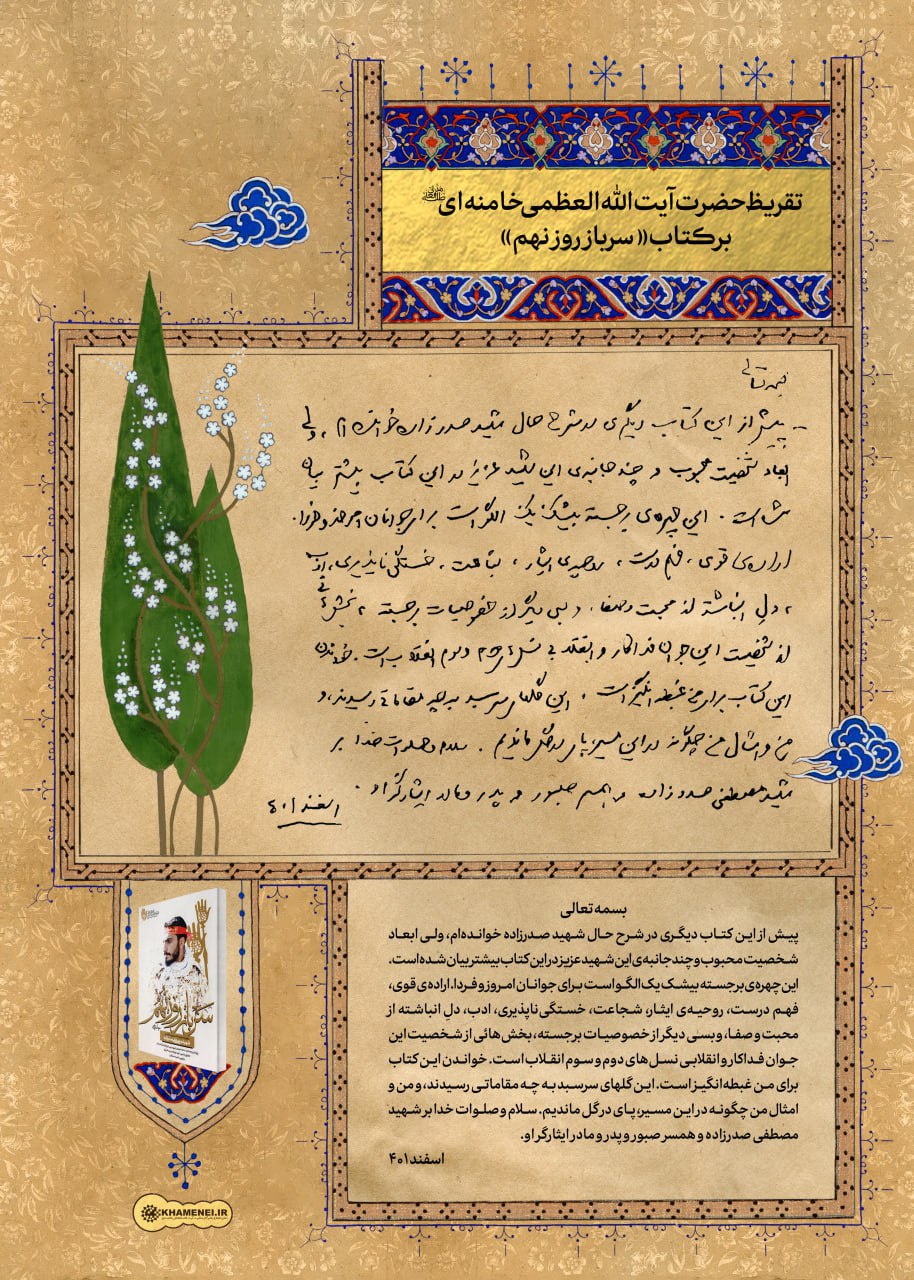 تقریظ حضرت آیت الله العظمی خامنه‌ای
بر کتاب «سرباز روز نهم»
بسمه تعالی
ـ پیش از این کتاب دیگری در شرح حال شهید صدرزاده خوانده‌ام، ولی
ابعاد شخصیت محبوب و چندجانبه‌ی این شهید عزیز در این کتاب بیشتر بیان
شده است. این چهره‌ی برجسته بیشک یک الگو است برای جوانان امروز و فردا.
اراده‌ی قوی، فهم درست، روحیه‌ی ایثار، شجاعت، خستگی ناپذیری، ادب
، دل انباشته از محبت و صفا، و بسی دیگر از خصوصیات برجسته، بخش‌هائی
از شخصیت این جوان فداکار و انقلابی نسل‌های دوم و سوم انقلاب است. خواندن
این کتاب برای من غبطه‌انگیز است. این گلهای سرسبد به چه مقاماتی رسیدند، و
من و امثال من چگونه در این مسیر، پای در گل ماندیم. سلام و صلوات خدا بر
شهید مصطفی صدرزاده و همسر صبور و پدر و مادر ایثارگر او.
اسفند ۴۰۱
سرباز روز نهم
بسمه تعالی
پیش از این کتاب دیگری در شرح حال شهید صدرزاده خوانده‌ام، ولی ابعاد
شخصیت محبوب و چندجانبه‌ی این شهید عزیز در این کتاب بیشتر بیان شده است.
این چهره‌ی برجسته بیشک یک الگو است برای جوانان امروز و فردا. اراده‌ی قوی،
فهم درست، روحیه‌ی ایثار، شجاعت، خستگی ناپذیری، ادب، دل انباشته از
محبت و صفا، و بسی دیگر از خصوصیات برجسته، بخش‌هائی از شخصیت این
جوان فداکار و انقلابی نسل‌های دوم و سوم انقلاب است. خواندن این کتاب
برای من غبطه‌انگیز است. این گلهای سرسبد به چه مقاماتی رسیدند، و من و
امثال من چگونه در این مسیر، پای در گل ماندیم. سلام و صلوات خدا بر شهید
مصطفی صدرزاده و همسر صبور و پدر و مادر ایثارگر او.
اسفند ۴۰۱
KHAMENEI.IR